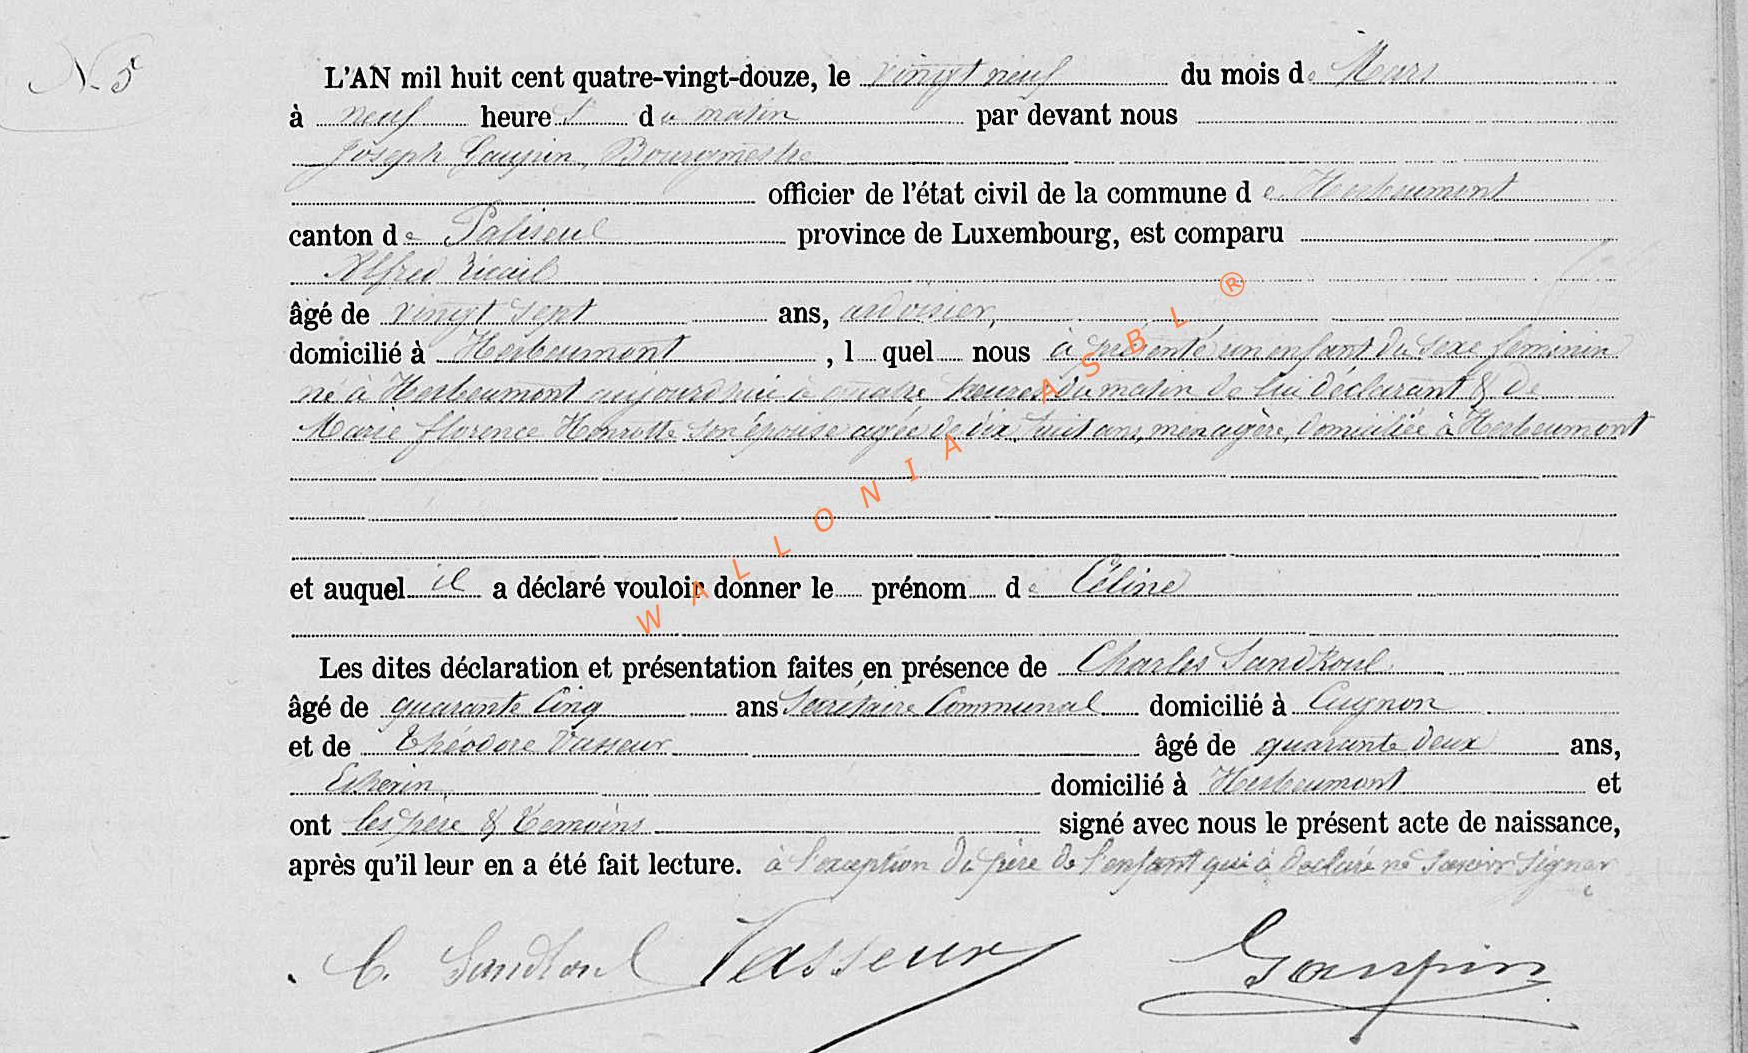 N. 5
L'AN mil huit cent quatre-vingt-douze, le vingt neuf du mois de Mars
à neuf heures du matin par devant nous
Joseph Gaupin, Bourgmestre
officier de l'état civil de la commune de Herbeumont
canton de Paliseul province de Luxembourg, est comparu
Alfred
âgé de vingt sept ans, ardoisier,
domicilié à Herbeumont, l quel nous à présenté un enfant du sexe féminin
né à Herbeumont aujourd'hui à quatre heures du matin de lui déclarant & de
Marie florence Henrotte son épouse agée de dix huit ans, ménagère, domiciliée à Herbeumont
et auquel il a déclaré vouloir donner le prénom de Céline
Les dites déclaration et présentation faites en présence de Charles Sandkoul
âgé de quarante Cinq ans Secrétaire Communal domicilié à Cugnon
et de Théodore Vasseur âgé de quarante deux ans,
Echevin, domicilié à Herbeumont et
ont les père & témoins signé avec nous le présent acte de naissance,
après qu'il leur en a été fait lecture. à l'exception du père de l'enfant qui à déclaré ne savoir signer
C. Sandkoul Vasseur Gaupin
WALLONIA ASBL ®